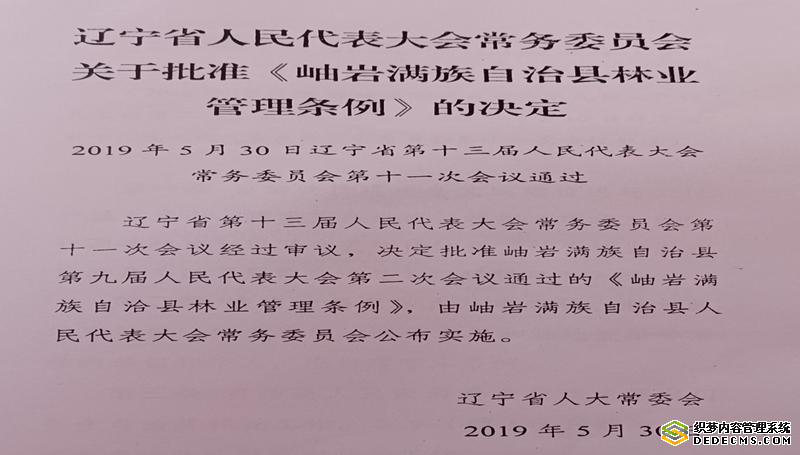 辽宁省人民代表大会常务委员会
关于批准《岫岩满族自治县林业
管理条例》的决定
2019 年 5 月 30 日辽宁省第十三届人民代表大会
常务委员会第十一次会议通过
辽宁省第十三届人民代表大会常务委员会第
十一次会议经过审议，决定批准岫岩满族自治县
第九届人民代表大会第二次会议通过的《岫岩满
族自治县林业管理条例》，由岫岩满族自治县人
民代表大会常务委员会公布实施。
辽宁省人大常委会
2019 年 5 月 30
织梦内容管理系统
DEDECMS.COM